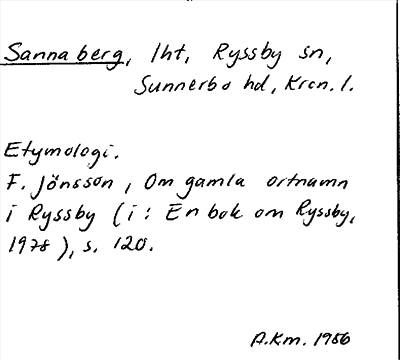 Sannaberg, lht, Ryssby sn,
Sunnerbo hd, Kron. l.
Etymologi.
F. Jönsson, Om gamla ortnamn
i Ryssby (i: En bok om Ryssby,
1978), s. 120.
A.Km. 1986